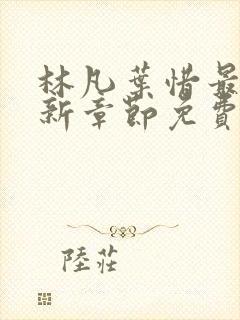 林凡葉惜最
新章節免費
陸莊